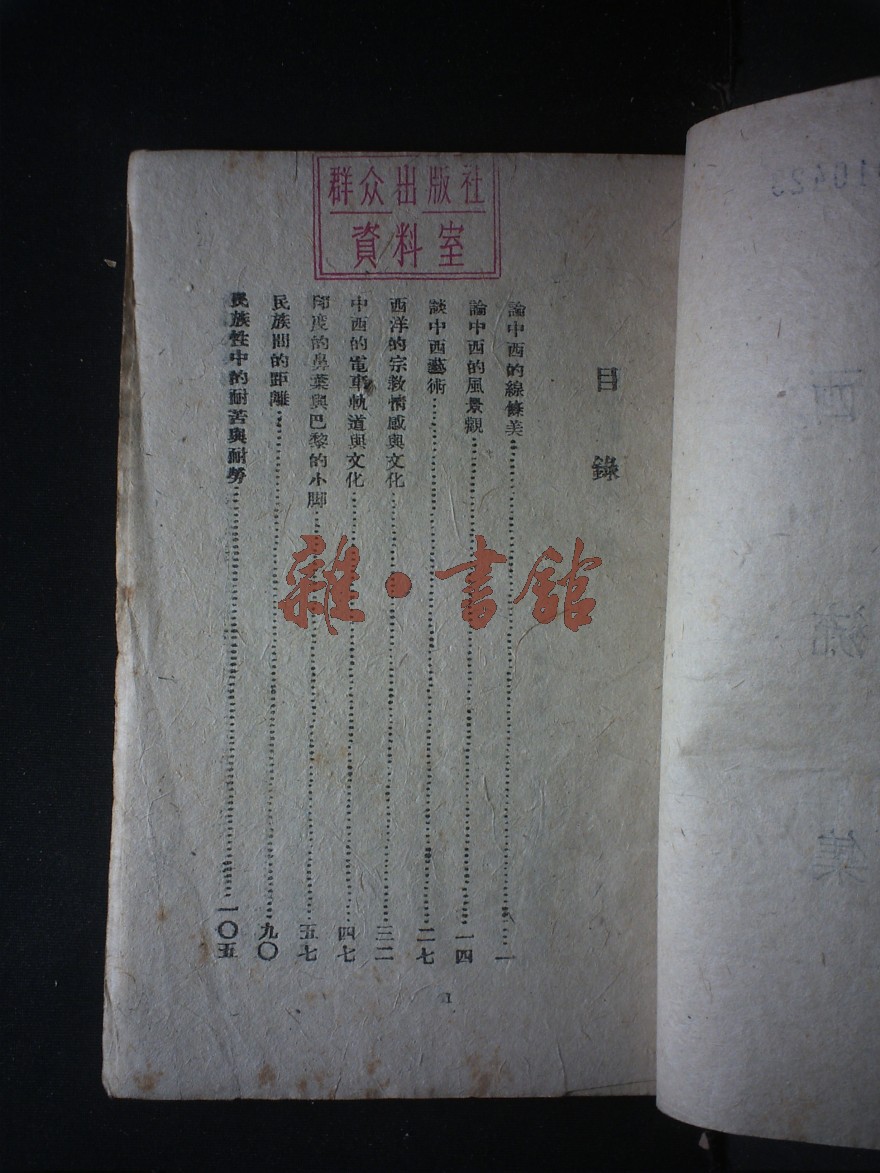 群众出版社
資料室
目錄
論中西的線條美……一
論中西的風景觀……一四
談中西藝術……二七
西洋的宗教情感與文化……三二
中西的電車軌道與文化……四七
印度的鼻葉與巴黎的小脚……五七
民族間的距離……九〇
民族性中的耐苦與耐勞……一〇五
1
雜·書館